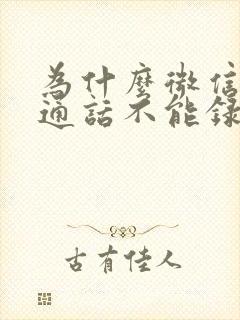 為什麼微信
通話不能錄
古有佳人